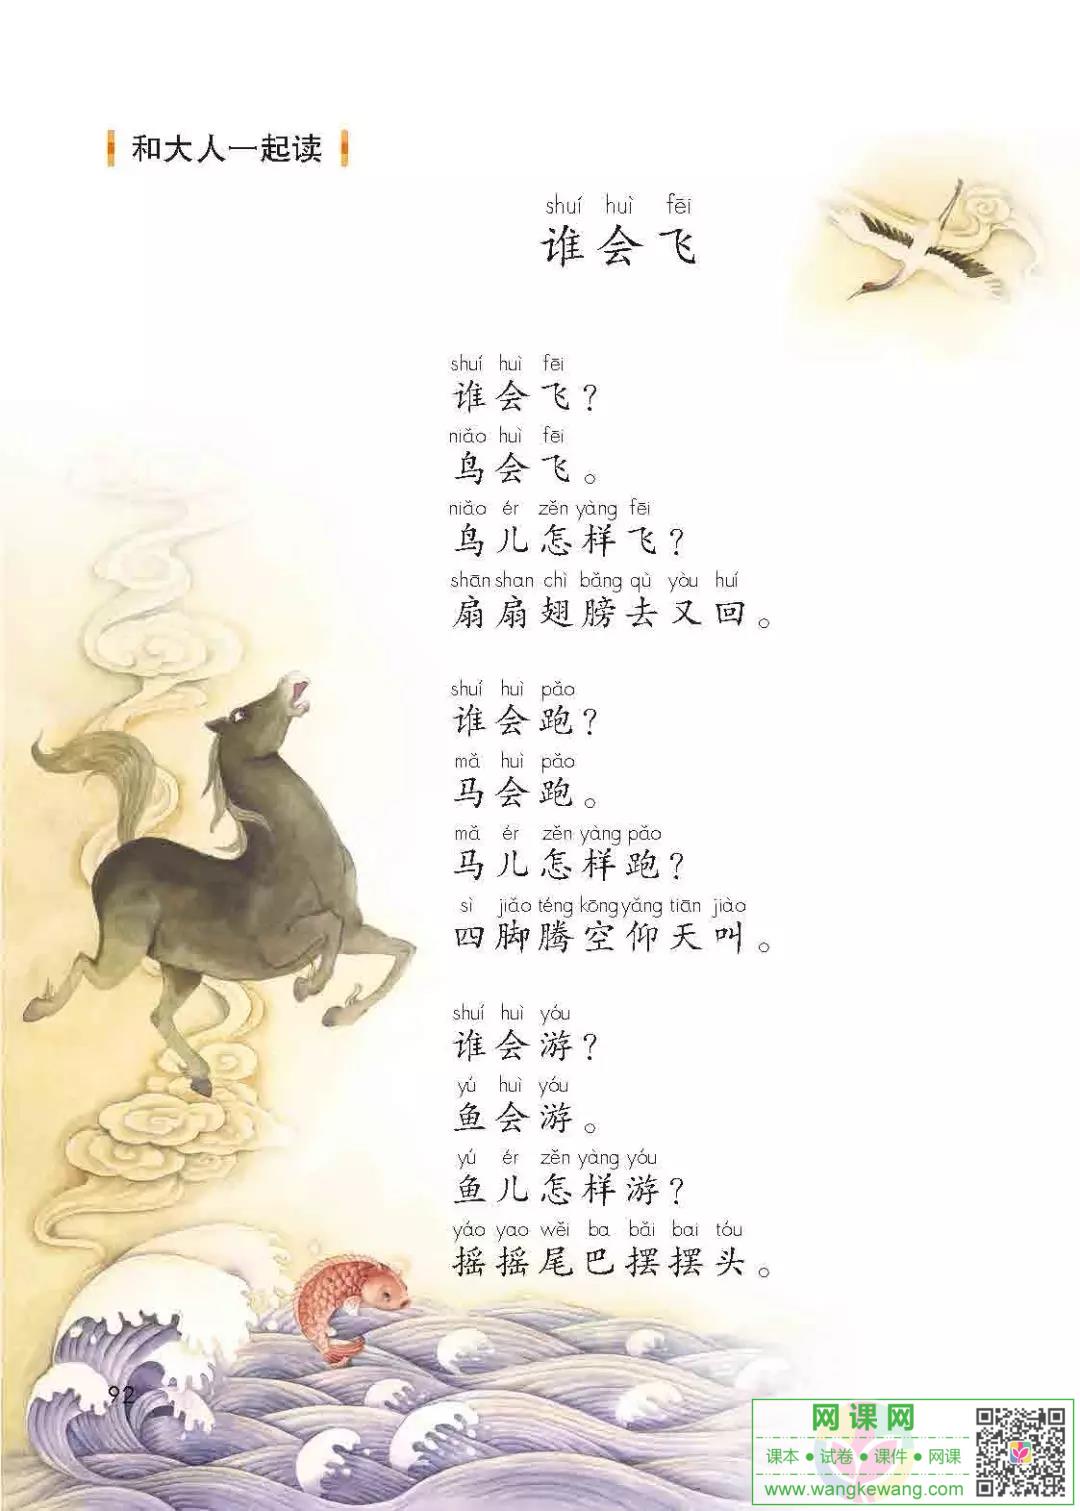 和大人一起读
shuí huì fēi
谁会飞
shuí huì fēi
谁会飞？
niǎo huì fēi
鸟会飞。
niǎo ér zěn yàng fēi
鸟儿怎样飞？
shān shan chì bǎng qù yòu huí
扇扇翅膀去又回。
shuí huì pǎo
谁会跑？
mǎ huì pǎo
马会跑。
mǎ ér zěn yàng pǎo
马儿怎样跑？
sì jiǎo téng kōng yǎng tiān jiào
四脚腾空仰天叫。
shuí huì yóu
谁会游？
yú huì yóu
鱼会游。
yú ér zěn yàng yóu
鱼儿怎样游？
yáo yao wěi ba bǎi bai tóu
摇摇尾巴摆摆头。
92
网课网
课本●试卷●课件●网课
www.wangkewang.com